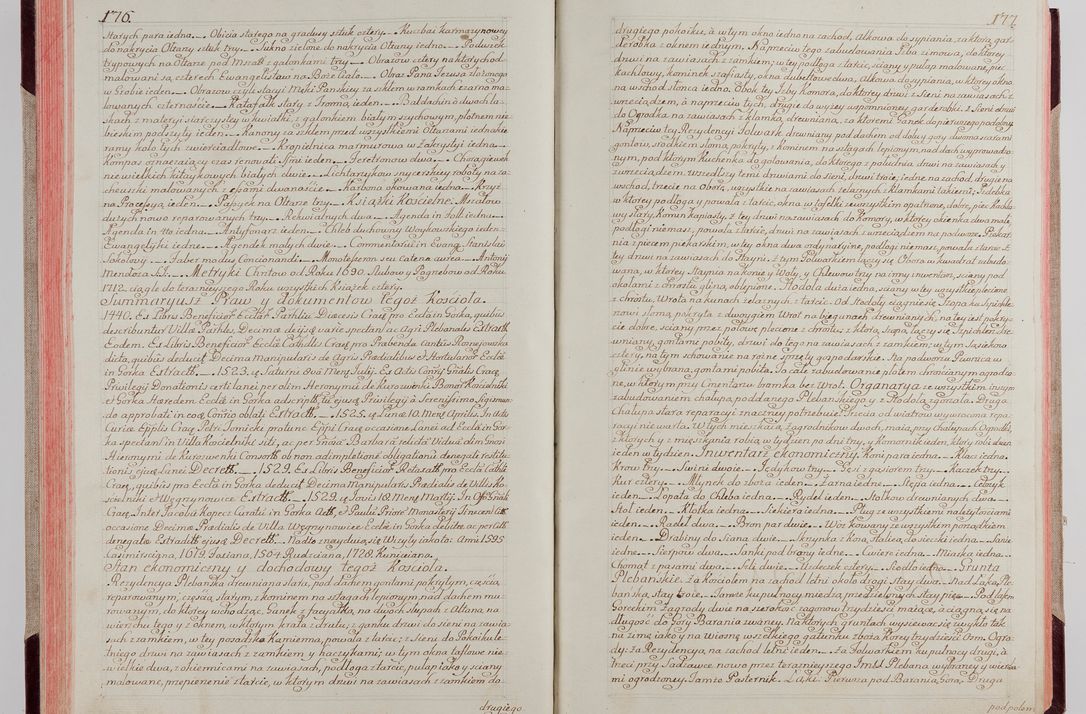 176.
Starych para iedna. Obicia starego na gradusy sztuk cztery. Kuczbai karmazynowey
do nakrycia Ołtarzy sztuk trzy. Sukno zielone do nakrycia Ołtarzy iedno. Poduszek
trypowych na Ołtarze pod Mszał z galonkami trzy. Obrazow cztery na ktorych od
malowani są czterech Ewangelistow na Boże Ciało. Obraz Pana Jezusa złożonego
w Grobie ieden. Obrazow czyli stacyi Męki Panskiey za szkłem w ramkach czarno ma-
lowanych czternascie. Katafalk stary z Tromną ieden. Baldachin o dwoch la-
skach z materyi siarczystey w kwiatki, z galonkiem białym szychowym, płotnem nie-
bieskim podszyty ieden. Kanony za szkłem przed wszystkiemi Ołtarzami iednakie
ramy koło tych zwierciadłowe. Kropielnica marmurowa w Zakrystyi iedna.
Kompas oznaczaiący czas renovati ieden. Feretronow dwa. Chorągiewek
niewielkich kitaykowych białych dwie. Lichtarzykow snycerskiey roboty na za-
cheuszki malowanych z esami dwanascie. Karbona okowana iedna. Krzyż
na Processyą ieden. Pulpitek na Ołtarze trzy. Książki Koscielne. Mszałow
duzych nowo reparowanych trzy. Rekwialnych dwa. Agenda in folio iedna.
Agenda in 4to iedna. Antyfonarz ieden. Chleb duchowny Woykowskiego ieden.
Ewangeliyki iedne. Agendek małych dwie. Commentarii in Evang. Stanislai
Sokołowy. Faber modus Concionandi. Monotessaron seu catena aurea. Antonij
Mendoza S.J. Metryki Chrztow od Roku 1690. Slubow y Pogrzebow od Roku
1712. ciągle do teraznieyszego Roku wszystkich Książek cztery.
Summaryusz Praw y dokumentow tegoż Koscioła.
1440. Ex Libris Beneficior. Ecclar. Parhliu Diœcesis Cracq pro Ecclã in Gorka, quibus
describuntur Villæ Parhles, Decimæ dijsq varie spectant ac Agri Plebanales Extractt.
Eodem. Ex Libris Beneficior. Ecclã Cathdlis Cracq pro Præbenda Cantus Ronejowska
dicta, quibus deducit Decima Manipularis de Agris Prædialibus et Hortulanor. Ecclã
in Gorka Extractt. 1523. in Saturni 2da Mens. Julij. Ex Actis Consij Gnalis Cracq
Privilegij Donationis certi lanei per olim Hieronymi de Kurozwenki
et Gorka Hæredem Ecclã in Gorka adscriptt. Et ejusd. Privilegij à Serenissimo Sigismun
do approbati in coq Consio oblati Extractt. 1525. in Lunæ 10. Mens. Aprilis. In Actis
Curiæ Epplis Cracq Petri Tomicki protunc Eppi Cracq occasione Lanei ad Ecclã in Gor-
ka spectant. in Villa Koscielniki siti, ac per Gnosa Barbara relicta Vidua olim Gnosi
Hieronymi de Kurozwenki Consortt. ob non adimpletione obligationu denegatæ restitu-
tionis ejusd. Lanei Decrett. 1529. Ex Libris Beneficior. Retaxatt. pro Ecclã Cathdl.
Cracq, quibus pro Ecclã in Gorka deducit Decima Manipularis Prædialis de Villis Ko-
scielniki et Węgrzynowice Extractt. 1529. in Jovis 18. Mens. Martij. In Offo Gnali
Cracq. Inter Jacobu Kopecz Curatu in Gorka Actt. et Paulu Priore Monasterij
occasione Decimæ Prædialis de Villa Węgrzynowice Ecclæ in Gorka debitæ ac per Citt.
denegatæ Extraditt. ejusd. Decrett. Nadto znayduią się Wizyty iakoto: Anni 1595
Casimirsciana, 1619. Fasiana, 1564. Rudziana, 1728. Kunicciana.
Stan ekonomiczny y dochodowy tegoż Koscioła.
Rezydencya Plebanska drewniana stara, pod dachem gontami pokrytym, częscią
reparowanym, częscią starym, z kominem na sztagach lepionym nad dachem mu-
rowanym, do ktorey wchodząc, Ganek z facyatką, na dwoch słupach z Altaną, na
wierzchu tego y z oknem, w ktorym krata z dratu; z ganku drzwi do sieni na zawia-
sach z zamkiem, w tey posadzka kamienna, powała z tarcic; z sieni do Pokoiku le-
tniego drzwi na zawiasach z zamkiem y haczykami; w tym okna taflowe nie-
wielkie dwa, z okiennicami na zawiasach, podłoga z tarcic, pułap iako y sciany
malowane, przepierzenie z tarcic, w ktorym drzwi na zawiasach z zamkiem do
drugiego
177.
drugiego pokoiku, à w tym okno iedno na zachod, alkowa do sypiania, za ktorą gar-
derobka z oknem iednym. Naprzeciw tego zabudowania Izba zimowa, do ktorey
drzwi na zawiasach z zamkiem; w tey podłoga z tarcic, sciany y pułap malowane, piec
kachlowy, kominek szafiasty, okna dubeltowe dwa, Alkowa do sypiania, w ktorey okno
na wschod słonca iedno. Obok tey Izby Komora, do ktorey drzwi z Sieni na zawiasach z
wrzeciądzem, à naprzeciw tych, drugie do wyzey wspomnioney garderobki. z Sieni drzwi
do Ogrodka na zawiasach z klamką drewnianą, za ktoremi Ganek do pierwszego podobny.
Naprzeciw tey Rezydencyi Folwark drewniany pod dachem od dołu y gory dwoma szarami
gontow, srodkiem słomą pokryty, z kominem na sztagach lepionym, nad dach wyprowadzo-
nym, pod ktorym Kuchenka do gotowania, do ktorego z południa drzwi na zawiasach y
z wrzeciądzem. Wszedłszy temi drzwiami do Sieni, drzwi troie; iedne na zachod, drugie na
wschod, trzecie na Oborę, wszystkie na zawiasach żelaznych z klamkami takiemi; Izdebka
w ktorey podłoga y powała z tarcic, okna w tafelki ze wszystkim opatrzone, dobre, piec kachlo-
wy stary, Komin kapiasty, z tey drzwi na zawiasach do Komory, w ktorey okienka dwa małe,
podłogi niemasz, powała z tarcic, drzwi na zawiasach z wrzeciądzem na podworze. Piekar-
nia z piecem piekarskim, w tey okna dwa ordynaryine, podłogi niemasz, powała z tarcic. z
tey drzwi na zawiasach do Stayni. z tym Folwarkiem łączy się Obora w kwadrat zabudo-
wana, w ktorey Staynia na konie y Woły, y Chlewow trzy na inny inwentarz, sciany pod
okołami z chrostu gliną oblepione. Stodoła duża iedna, sciany w tey wszystkie plecione
z chrostu. Wrota na kunach żelaznych z tarcic. Od Stodoły ciągnie się Szopa ku Spichle-
nowi słomą pokryta z dwoygiem Wrot na biegunach drewnianych, na tey iest pokry-
cie dobre, sciany przez połowe plecione z chrostu; z ktorą Szopą łączy się Szpichlerz dre-
wniany, gontami pobity, drzwi do tego na zawiasach z zamkiem; w tym Sąsiekow
cztery, na tym schowanie na rożne sprzęty gospodarskie. Na podworzu Piwnica w
glinie wybrana, gontami pobita. To całe zabudowanie płotem chrościanym ogrodzo-
ne, w ktorym przy Cmentarzu bramka bez Wrot. Organarya ze wszystkim inszym
zabudowaniem chałupa, poddanego Plebanskiego y z Stodołą zgorzała. Druga
Chałupa stara reparacyi znaczney potrzebuie. Trzecia od wiatrow wywrocona repa-
racyi nie warta. W tych mieszkaią Zagrodnikow dwoch, maią przy chałupach Ogrodki,
z ktorych y z mieszkania robią w tydzien po dni trzy, y komornik ieden, ktory robi dzien
ieden w tydzien. Inwentarz ekonomiczny. Koni para iedna. Klacz iedna.
Krow trzy. Swini dwoie. Jędykow trzy. Gęsi z gąsiorem trzy. Kaczek trzy.
Kur cztery. Młynek do zboża ieden. Żarna iedne. Stępa iedna. Cebrzyk
ieden. Łopata do Chleba iedna. Rydel ieden. Stołkow drewnianych dwa.
Stoł ieden. Kłotka iedna. Siekiera iedna. Pług ze wszystkiemi należytosciami
ieden. Radeł dwa. Bron par dwie. Woz kowany ze wszystkim porządkiem
ieden. Drabiny do Siana dwie. Skrzynka z Kosą stalica, do sieczki iedna. Sanie
iedne. Sierpow dwa. Sanki pod brony iedne. Cwierc iedna. Miarka iedna.
Chomąt z pasami dwa. Szle dwie. Uzdeczek cztery. Siodło iedno. Grunta
Plebanskie. Za Kosciołem na zachod letni około drogi stay dwa. Nad Łąką Ple-
banską stay troie. Tamze ku pułnocy miedzą przedzielonych stay pięc. Pod lasem
Goreckim Zagrody dwie na szerokosc zagonow trzydziesci maiące, à ciągną się na
długosc do gory Barania zwaney. Na ktorych gruntach wysiewac się zwykło tak
na zimę iako y na Wiosnę wszelkiego gatunku zboża Korcy trzydziesci Osm. Ogro-
dy: za Rezydencyą, na zachod letni ieden. Za Folwarkiem ku pułnocy drugi, à
trzeci przy Sadzawce nowo przez teraznieyszego Jmsci X. Plebana wybraney y wierzba
mi ogrodzoney. Tamże Pasternik. Łąki: Pierwsza pod Barania Gorą. Druga
pod polem